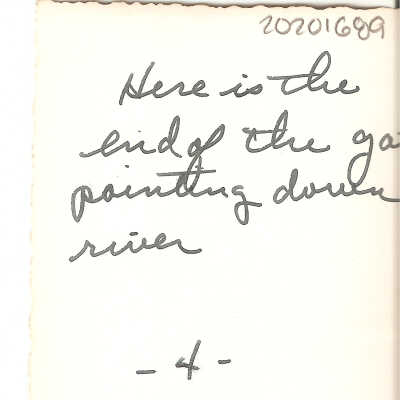 20201689
Here is the
end of the ga
pointing down
river
- 4 -